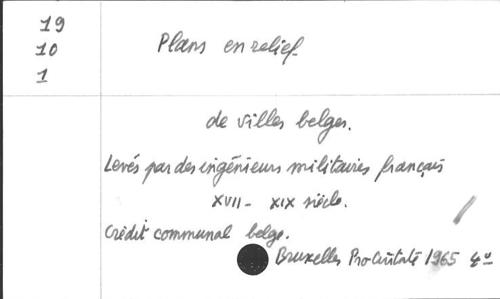 19
10
1
Plans en relief
de villes belges.
Levés par des ingénieurs militaires français
XVII - XIX siècle.
Crédit communal belge.
Bruxelles Pro Civitate 1965 4°